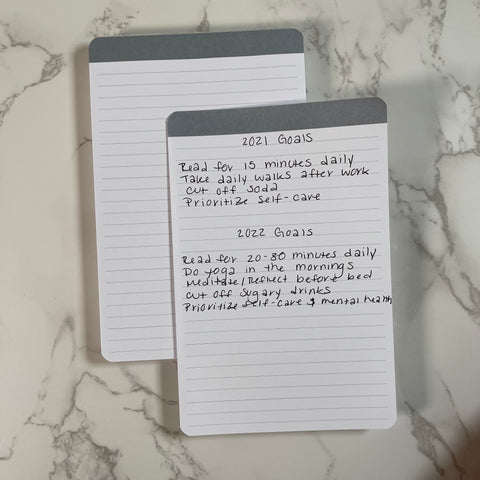 2021 Goals
Read for 15 minutes daily
Take daily walks after work
cut off soda
Prioritize self-care
2022 Goals
Read for 20-30 minutes daily
Do yoga in the mornings
Meditate/Reflect before bed
cut off sugary drinks
Prioritize self-care & mental health